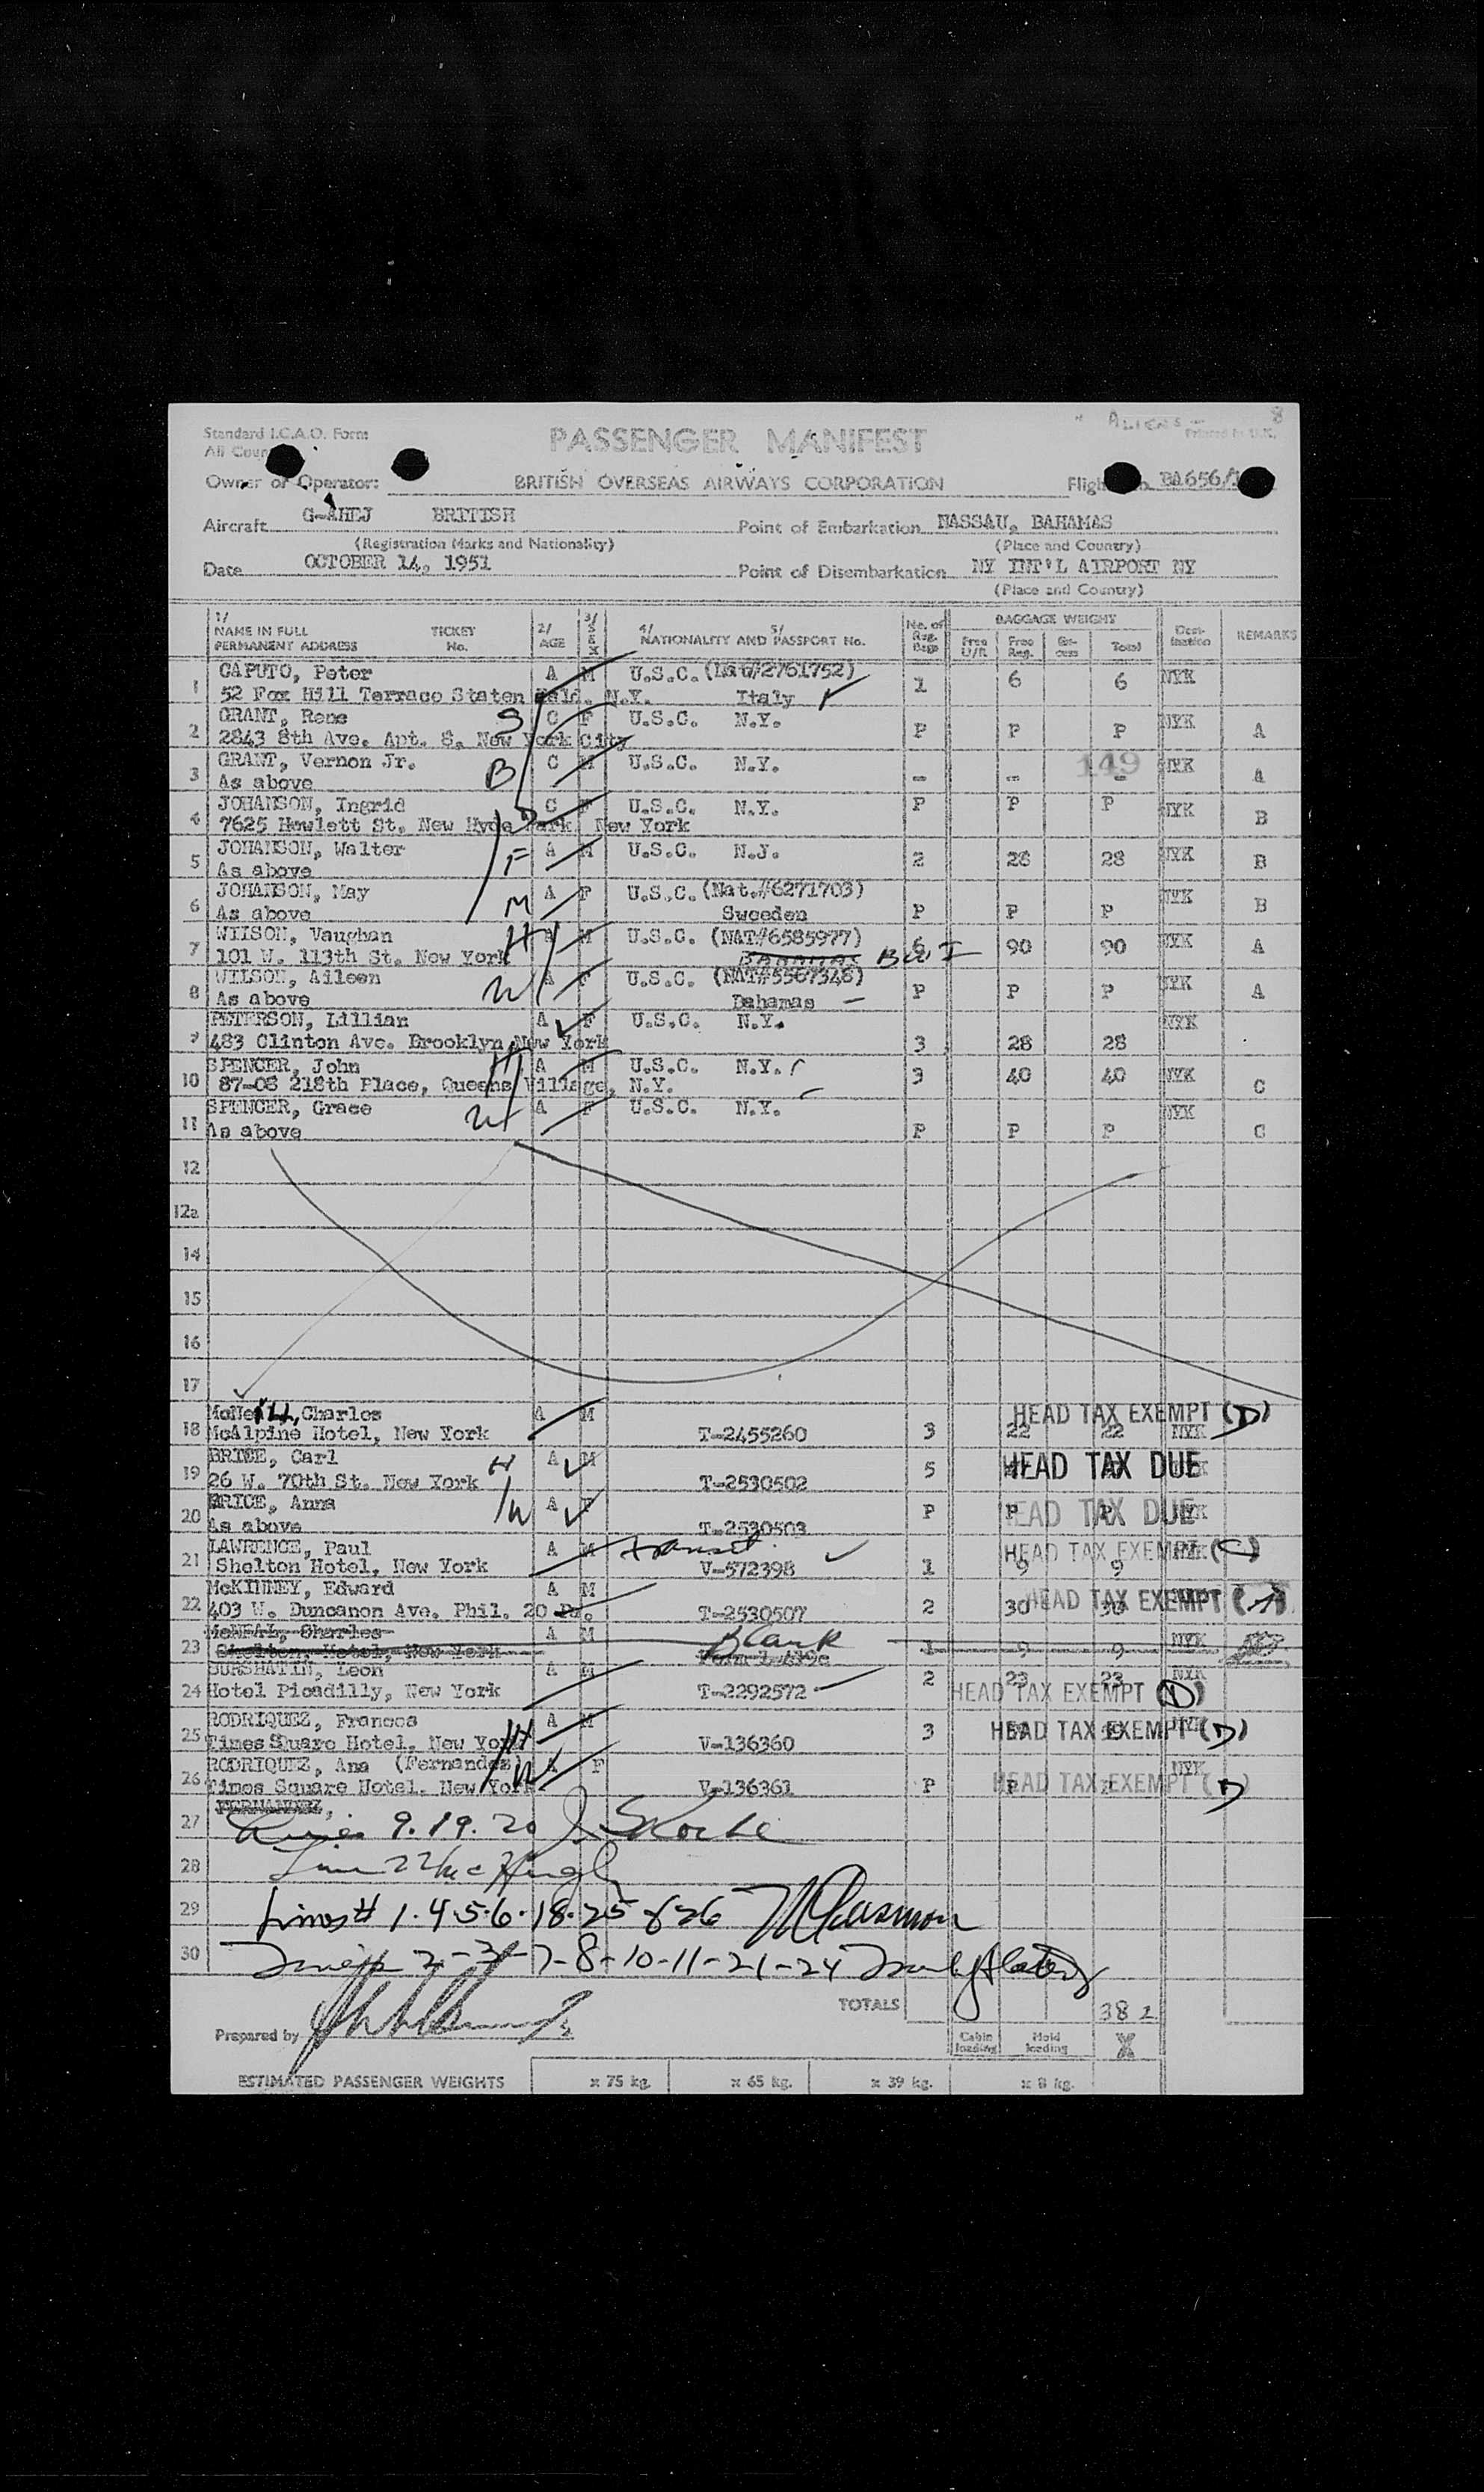 Standard I.C.A.O. Form:
" ALIENS - 8
Printed in U.K.
PASSENGER MANIFEST
Owner or Operator: BRITISH OVERSEAS AIRWAYS CORPORATION BA656/
Aircraft G-AHEJ BRITISH Point of Embarkation NASSAU, BAHAMAS
(Registration Marks and Nationality) (Place and Country)
Date OCTOBER 14, 1951 Point of Disembarkation NY INT'L AIRPORT NY
(Place and Country)
1/ NAME IN FULL TICKET 2/ 3/ SEX 4/ 5/ No. of Reg. Bags BAGGAGE WEIGHT Dest-ination REMARKS
PERMANENT ADDRESS No. AGE NATIONALITY AND PASSPORT No. Free U/R Free Reg. Ex-cess Total
1 CAPUTO, Peter A M U.S.C. (Nat#2761752) 1 6 6 NYK
52 Fox Hill Terrace Staten Isld. N.Y. Italy ✓
2 GRANT, Rene S C F U.S.C. N.Y. P P P NYK A
2843 8th Ave. Apt. 8. New York City
3 GRANT, Vernon Jr. B C M U.S.C. N.Y. - - - 149 NYK A
As above
4 JOHANSON, Ingrid D C F U.S.C. N.Y. P P P NYK B
7625 Hewlett St. New Hyde Park New York
5 JOHANSON, Walter F A M U.S.C. N.J. 2 28 28 NYK B
As above
6 JOHANSON, May M A F U.S.C. (Nat.#6271703) P P P NYK B
As above Sweeden
7 WIISON, Vaughan H A M U.S.C. (NAT#6585977) 6 90 90 NYK A
101 W. 113th St. New York BAHAMAS BWI
8 WILSON, Aileen W A F U.S.C. (NAT#5567348) P P P NYK A
As above Bahamas -
9 PETERSON, Lillian A F U.S.C. N.Y. 3 28 28 NYK
483 Clinton Ave. Brooklyn New York
10 SPENCER, John H A M U.S.C. N.Y. 3 40 40 NYK C
87-08 218th Place, Queens Village, N.Y.
11 SPENCER, Grace W A F U.S.C. N.Y. P P P NYK C
As above
12
12a
14
15
16
17
18 McNeill, Charles A M T-2455260 3 22 22 NYK HEAD TAX EXEMPT (D)
McAlpine Hotel, New York
19 BRICE, Carl H A M T-2530502 5 HEAD TAX DUE
26 W. 70th St. New York
20 BRICE, Anna W A F T-2530503 P P P NYK HEAD TAX DUE
As above
21 LAWRENCE, Paul A M transit V-572398 ✓ 1 9 9 NYK HEAD TAX EXEMPT (C)
Shelton Hotel, New York
22 McKINNEY, Edward A M T-2530507 2 30 30 HEAD TAX EXEMPT (A)
403 W. Duncanon Ave. Phil. 20 Pa.
23 McNEAL, Charles A M Blank 1 9 9 NYK
Shelton Hotel, New York
24 BURSHATIN, Leon A M T-2292572 2 23 23 NYK HEAD TAX EXEMPT (D)
Hotel Picadilly, New York
25 RODRIQUEZ, Frances H A M V-136360 3 HEAD TAX EXEMPT (D)
Times Square Hotel. New York
26 RODRIQUEZ, Ana (Fernandez) W A F V-136361 P P NYK HEAD TAX EXEMPT (D)
Times Square Hotel. New York
27 FERNANDEZ,
Lines 9.19.20
28 Line 22 McHugh
29 Lines # 1.4.5.6.18.25 & 26
30 2-3-7-8-10-11-21-24
TOTALS 382
Prepared by
Cabin loading Hold loading X
ESTIMATED PASSENGER WEIGHTS x 75 kg. x 65 kg. x 39 kg. x 8 kg.